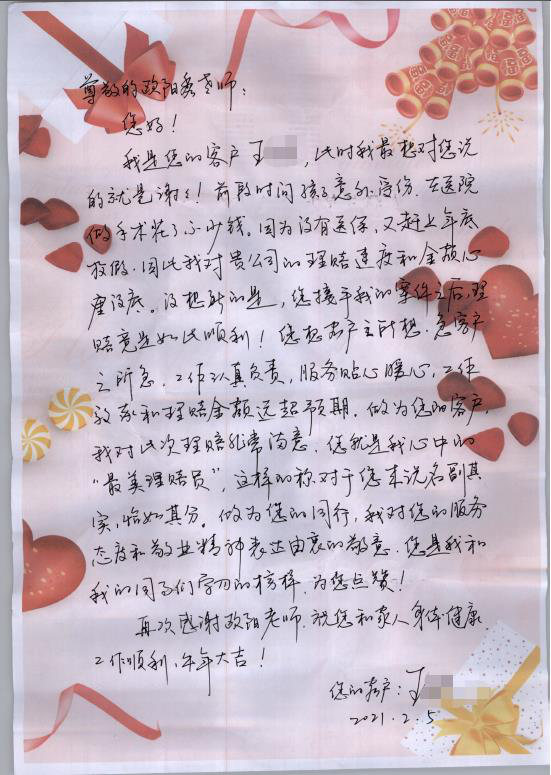 尊敬的欧阳老师：
您好！
我是您的客户王，此时我最想对您说
的就是谢谢！前段时间孩子意外受伤，在医院
做手术花了不少钱。因为没有医保，又赶上年底
放假，因此我对贵公司的理赔速度和金额心
里没底。没想到的是，您接手我的案件之后，理
赔竟是如此顺利！您想客户之所想，急客户
之所急，工作认真负责，服务贴心暖心，工作
效率和理赔金额远超预期。做为您的客户，
我对此次理赔非常满意，您就是我心中的
“最美理赔员”，这样的称对于您来说名副其
实，恰如其分。做为您的同行，我对您的服务
态度和敬业精神表达由衷的敬意，您是我和
我的同事们学习的榜样，为您点赞！
再次感谢欧阳老师，祝您和家人身体健康
工作顺利，牛年大吉！
您的客户：王
2021.2.5